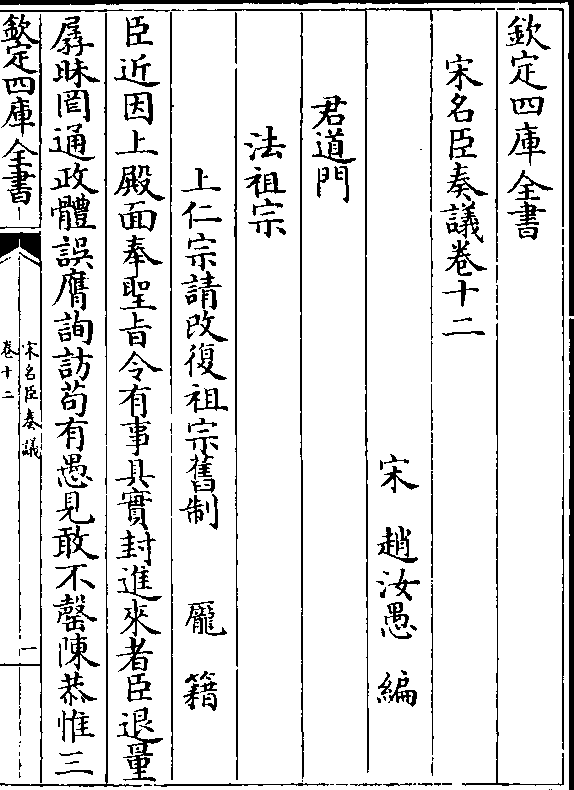 欽定四庫全書
宋名臣奏議卷十二
宋 趙汝愚 編
君道門
法祖宗
上仁宗請改復祖宗舊制 龐籍
臣近因上殿面奉聖旨令有事具實封進來者臣退量
孱昧罔通政體誤膺詢訪茍有愚見敢不罄陳恭惟三
欽定四庫全書
宋名臣奏議
卷十二
一